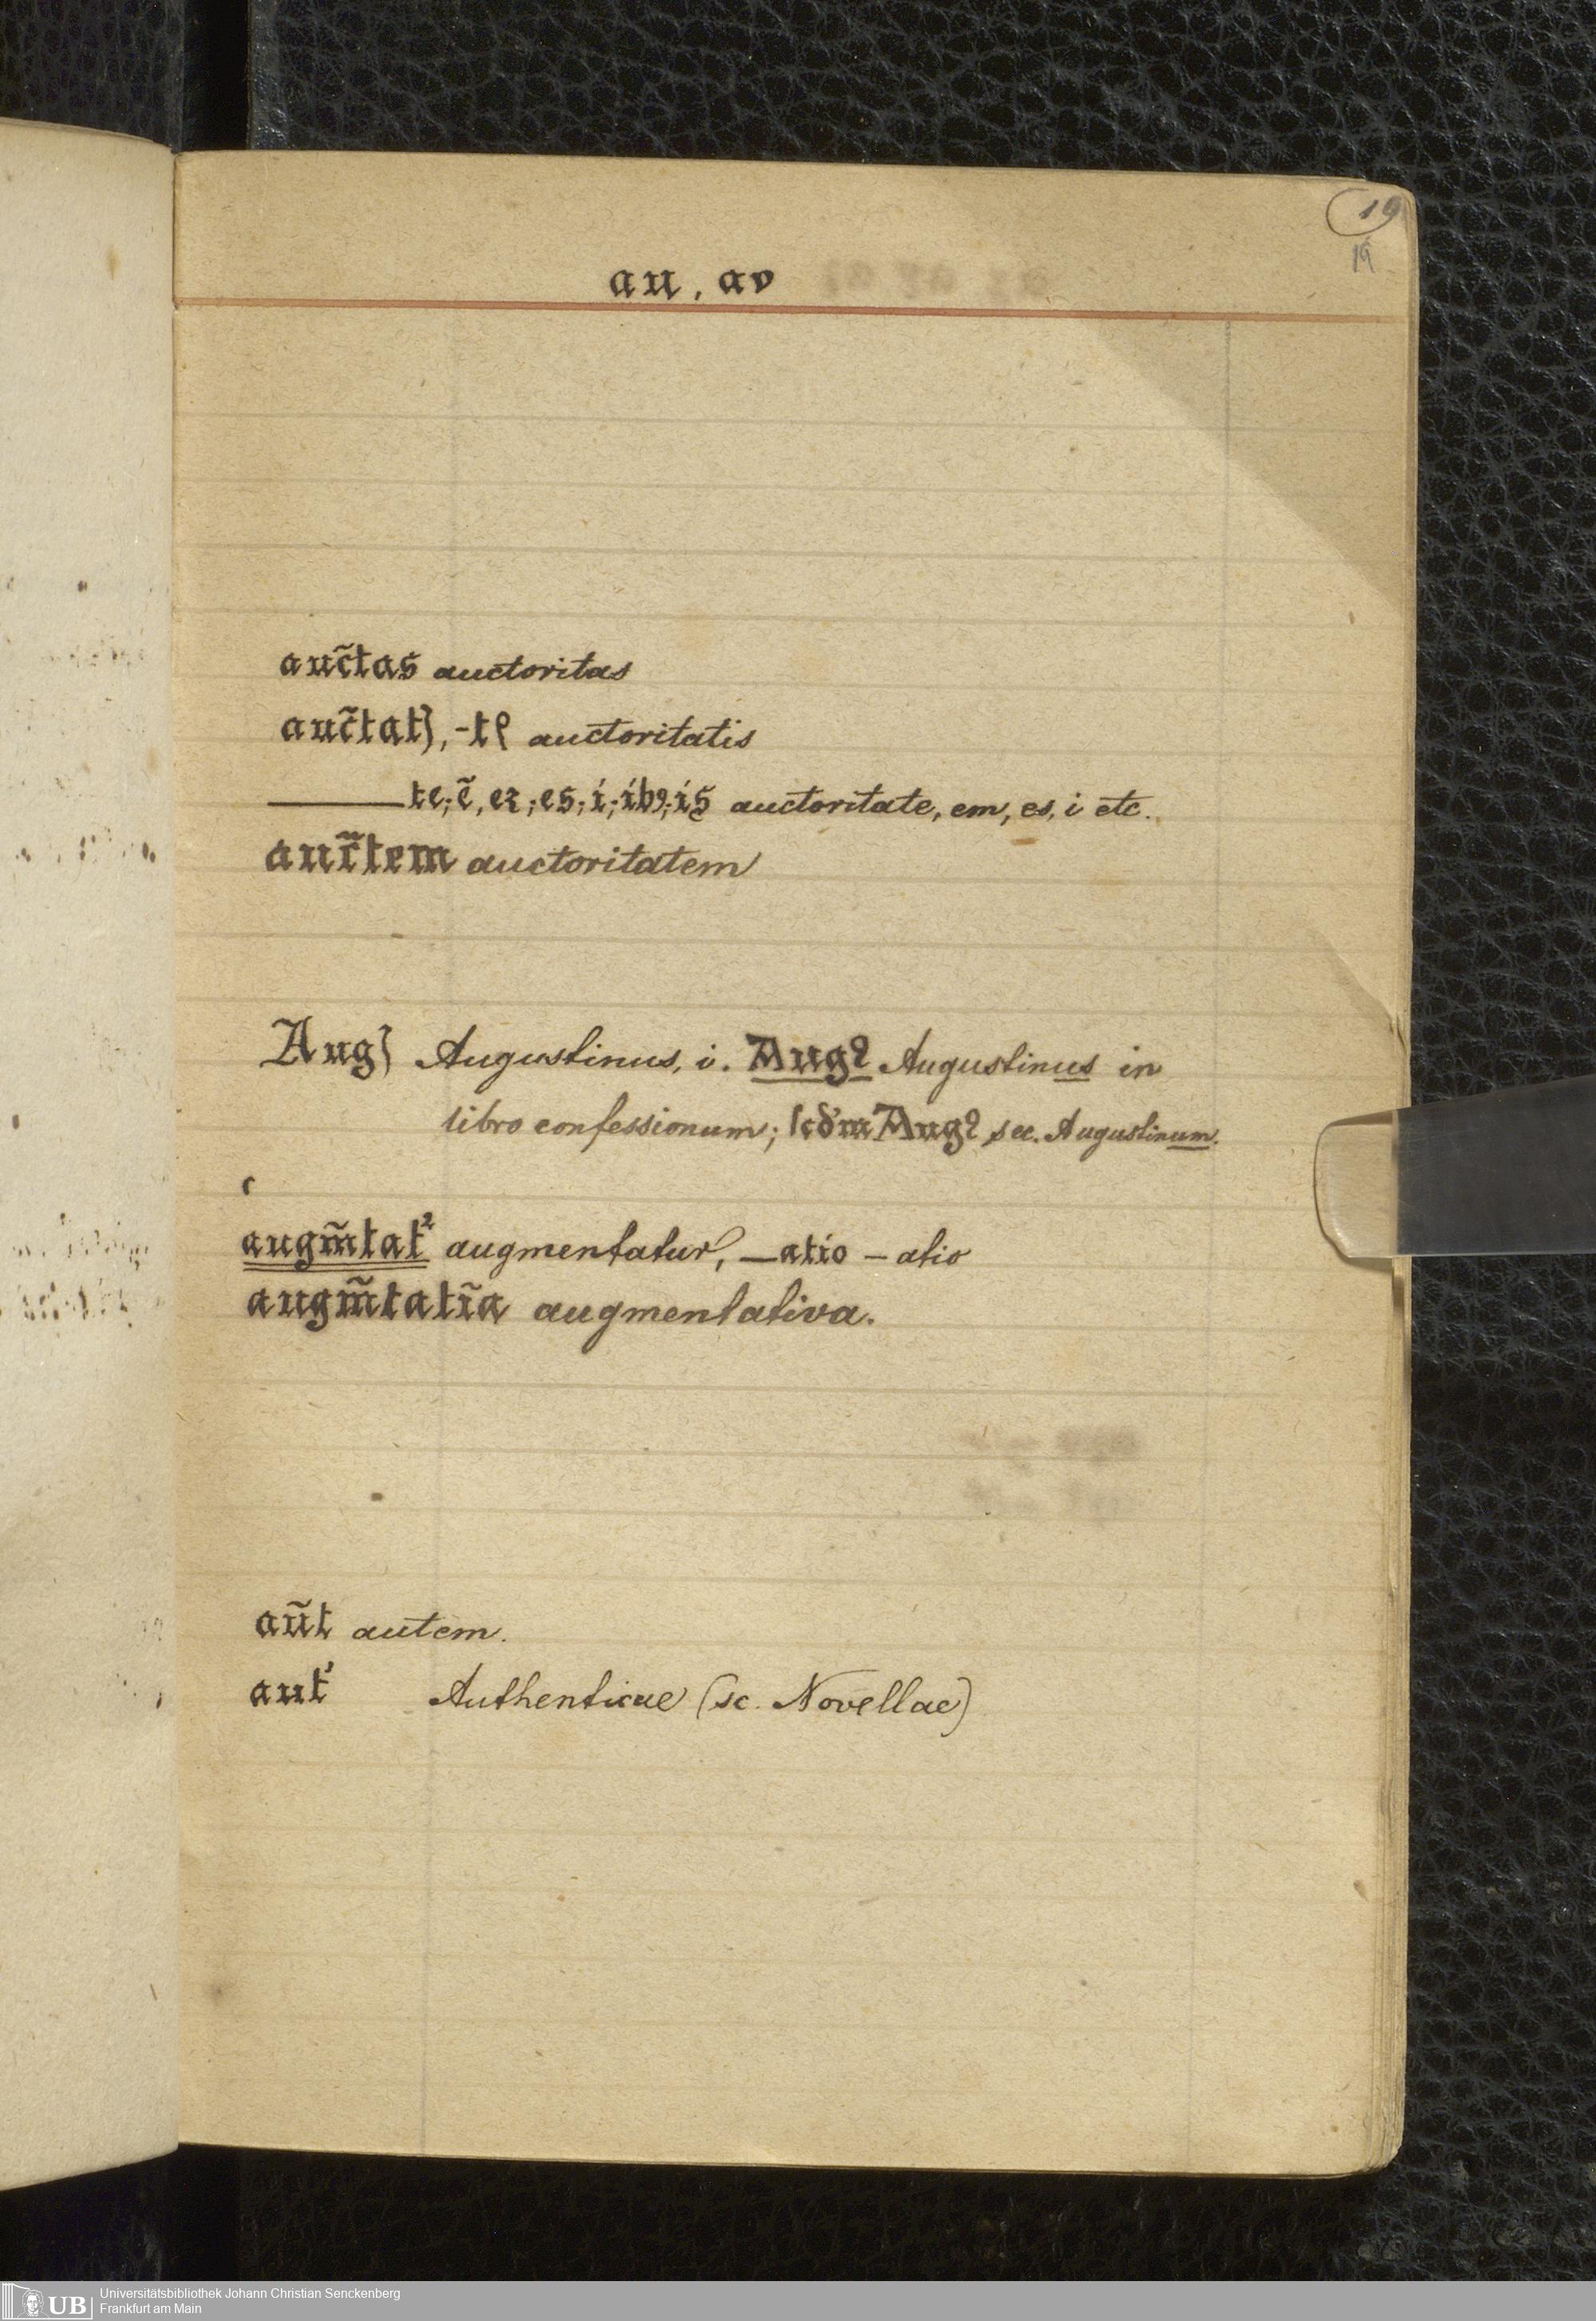 19
19
au, av
auc̃tas auctoritas
auc̃tatꝭ, -tꝭ auctoritatis
te; ẽ, eꝛ; es; i; ibꝰ; is auctoritate, em, es, i etc.
auc̃tem auctoritatem
Augꝭ Augustinus, i. Aug? Augustinus in
libro confessionum; scd'm Aug? sec. Augustinum.
augm̃tat² augmentatur, —atio — atio
augm̃tatĩa augmentativa.
aũt autem.
aut' Authenticae (sc. Novellae)
UB
Universitätsbibliothek Johann Christian Senckenberg
Frankfurt am Main